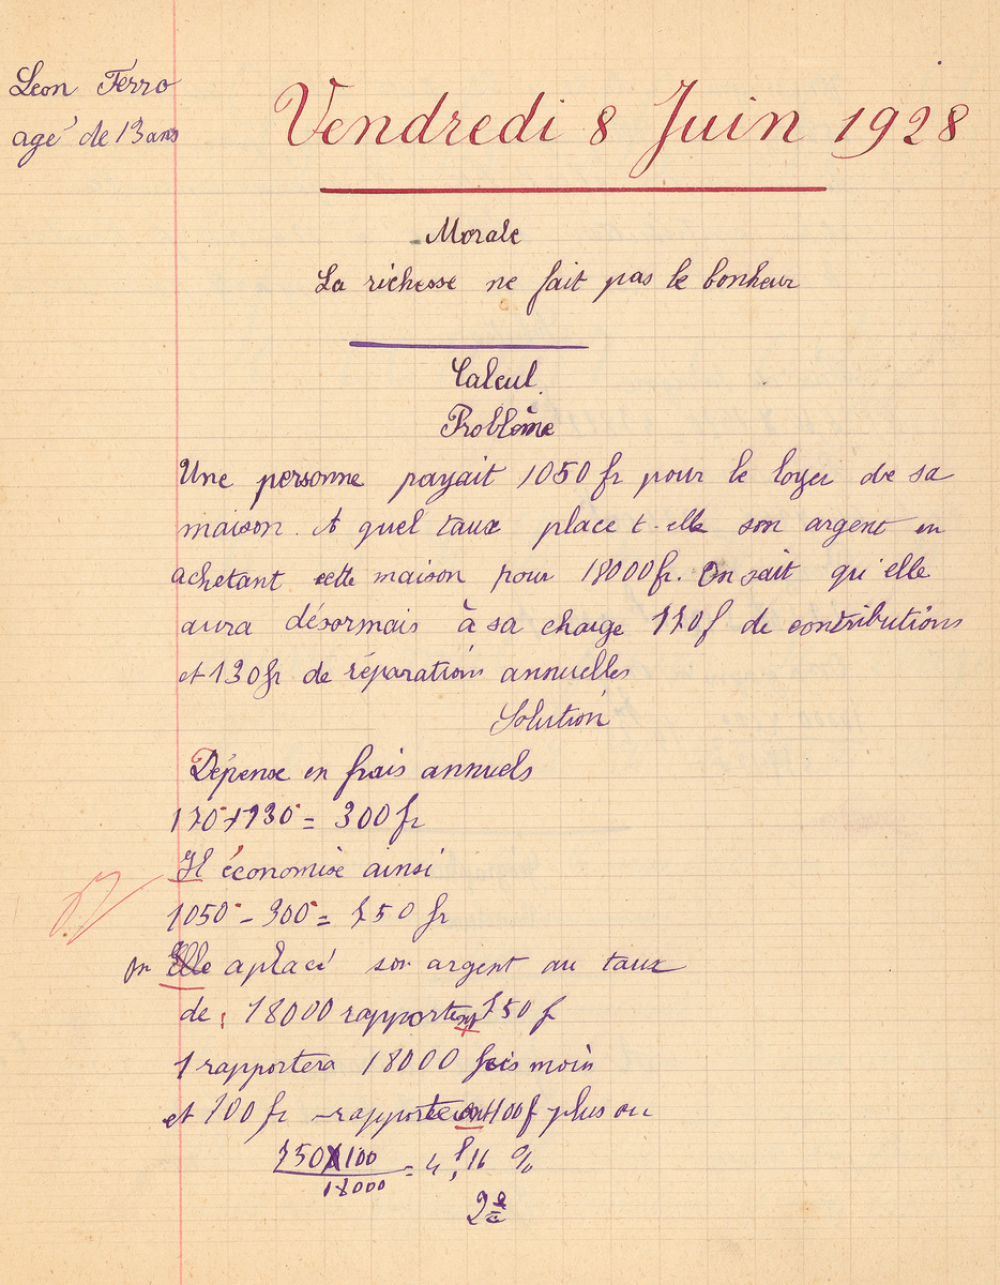 Léon Ferro
agé de 13 ans
Vendredi 8 Juin 1928
Morale
La richesse ne fait pas le bonheur
Calcul
Problème
Une personne payait 1050 fr pour le loyer de sa
maison. A quel taux place t-elle son argent en
achetant cette maison pour 18000 fr. On sait qu'elle
aura désormais à sa charge 170 f de contributions
et 130 fr de réparations annuelles
Solution
Dépense en frais annuels
170 + 130 = 300 fr
Il économise ainsi
1050 - 300 = 750 fr
on a placé son argent au taux
de : 18000 rapportent 750 f
1 rapportera 18000 fois moin
et 100 fr rapporteront 100 f plus ou
750 X 100
18000
= 4,16 %